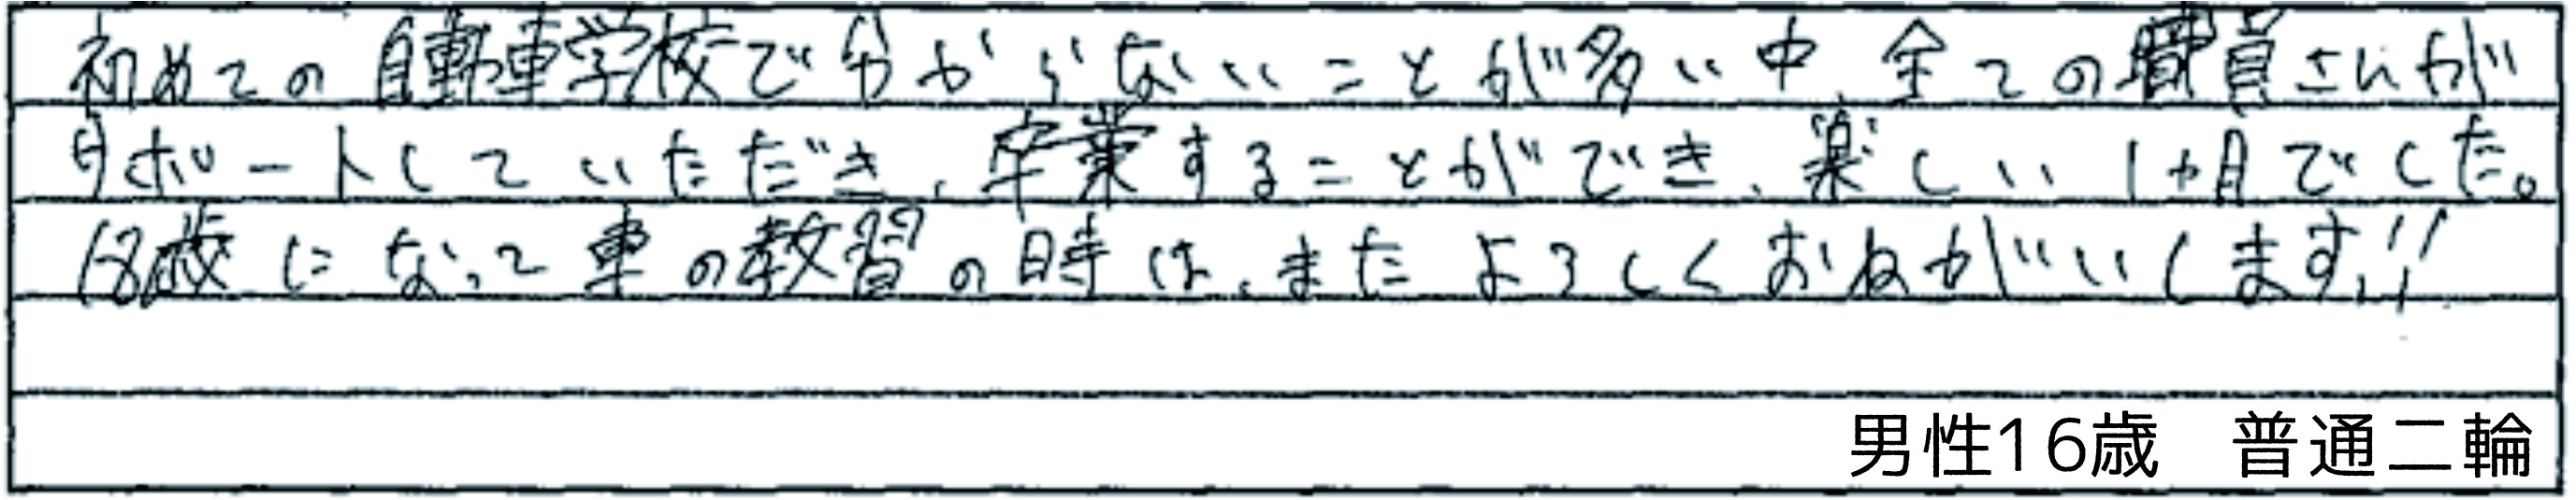 初めての自動車学校で分からないことが多い中、全ての職員さんが
サポートしていただき、卒業することができ、楽しい1ヶ月でした。
18歳になって車の教習の時は、またよろしくおねがいいします!!
男性16歳 普通二輪